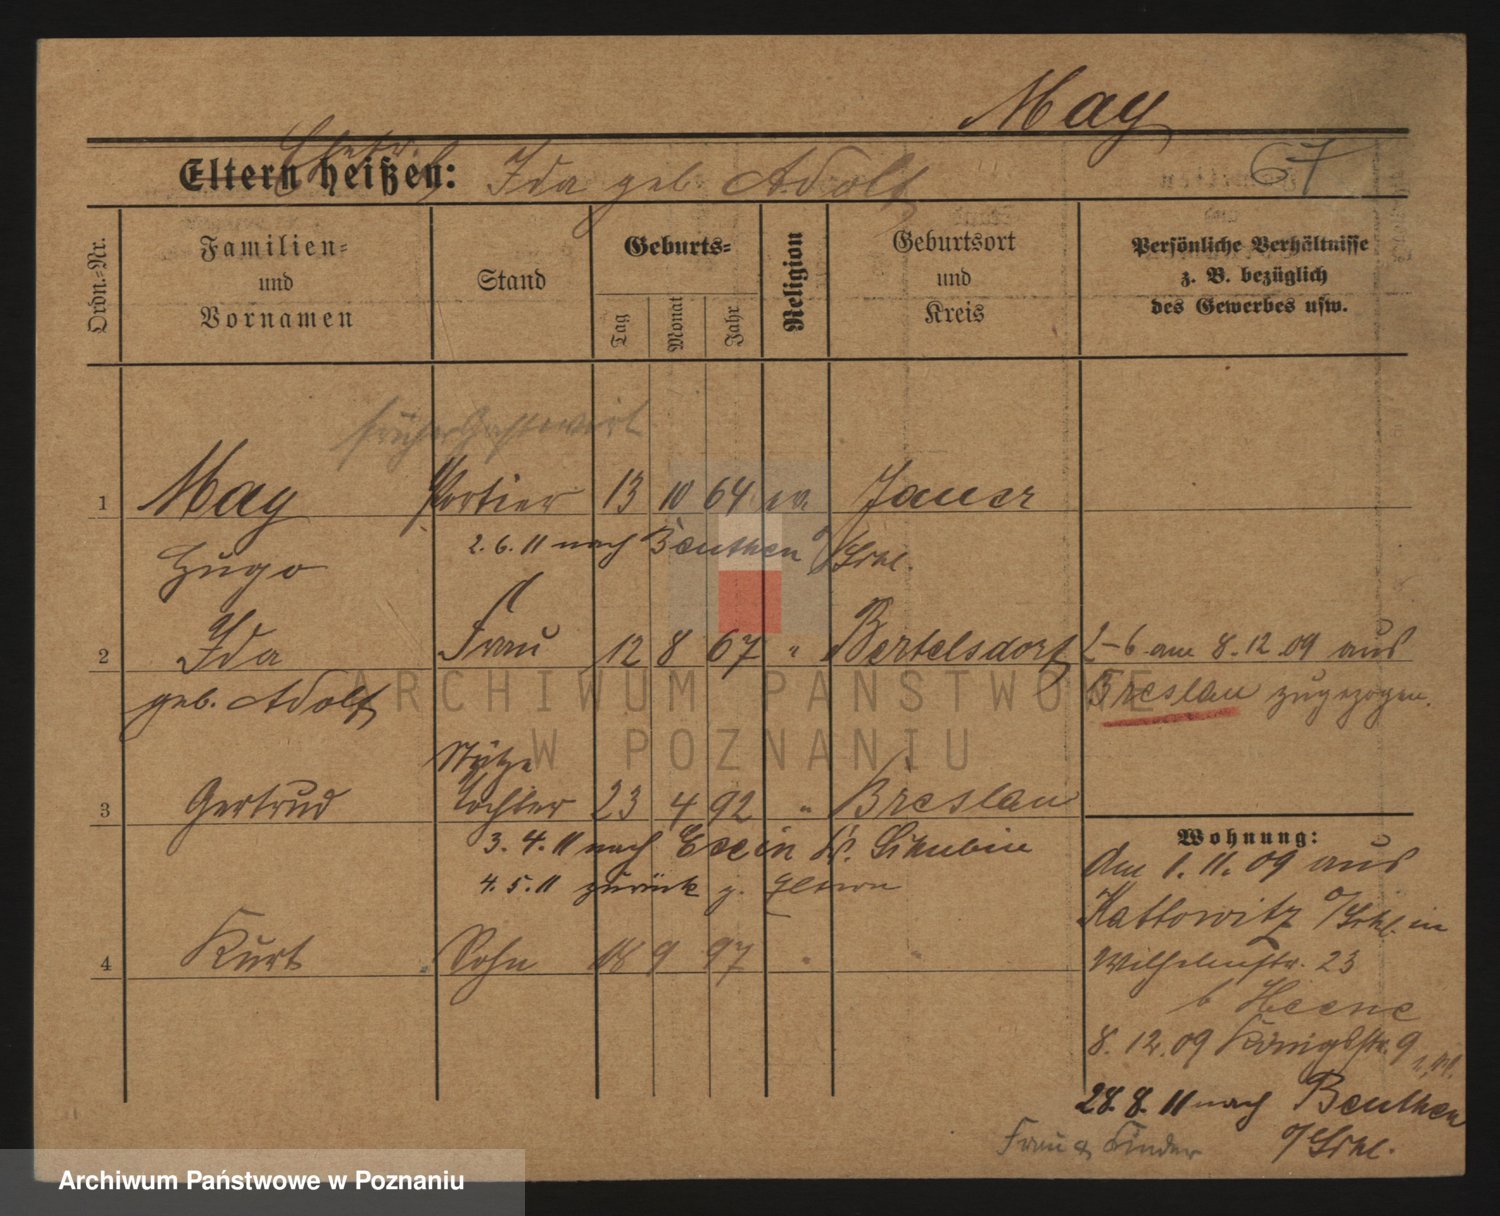 May
67
Eltern heißen: Ida geb. Adolf
Ordn.-Nr.
Familien-
und
Vornamen
Stand
Geburts-
Tag
Monat
Jahr
Religion
Geburtsort
und
Kreis
Persönliche Verhältnisse
z. B. bezüglich
des Gewerbes usw.
früher Gastwirt
1 May Portier 13 10 64 ev. Jauer
Hugo 2. 6. 11 nach Beuthen O/Schl.
2 Ida Frau 12 8 67 " Bertelsdorf
geb. Adolf
2-6 am 8. 12. 09 aus
Breslau zugezogen.
Stütze
3 Gertrud Tochter 23 4 92 " Breslau
3. 4. 11 nach Exin Kr. Schubin
4. 5. 11 zurück z. Eltern
4 Kurt Sohn 18 9 97 " "
Wohnung:
Am 1. 11. 09 aus
Kattowitz O/Schl. in
Wilhelmstr. 23
b Heene
8. 12. 09 Königstr. 9
28. 8. 11 nach Beuthen
O/Schl.
Frau & Kinder
ARCHIWUM PAŃSTWOWE
W POZNANIU
Archiwum Państwowe w Poznaniu